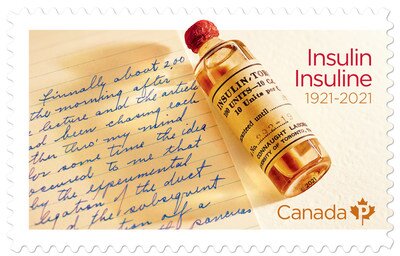 Finnally about 2,00
the morning after
lecture and the article
had been chasing each
other thro' my mind
for some time the idea
occured to me that
by the experimental
ligation of the duct
d the subsequent
tion of a
the pancreas
INSULIN-TORO
100 UNITS-10 C.c.
10 Units per C
until
No. 092-119
CONNAUGHT LABORA
UNIVERSITY OF TORONTO,
2021
Insulin
Insuline
1921-2021
Canada P